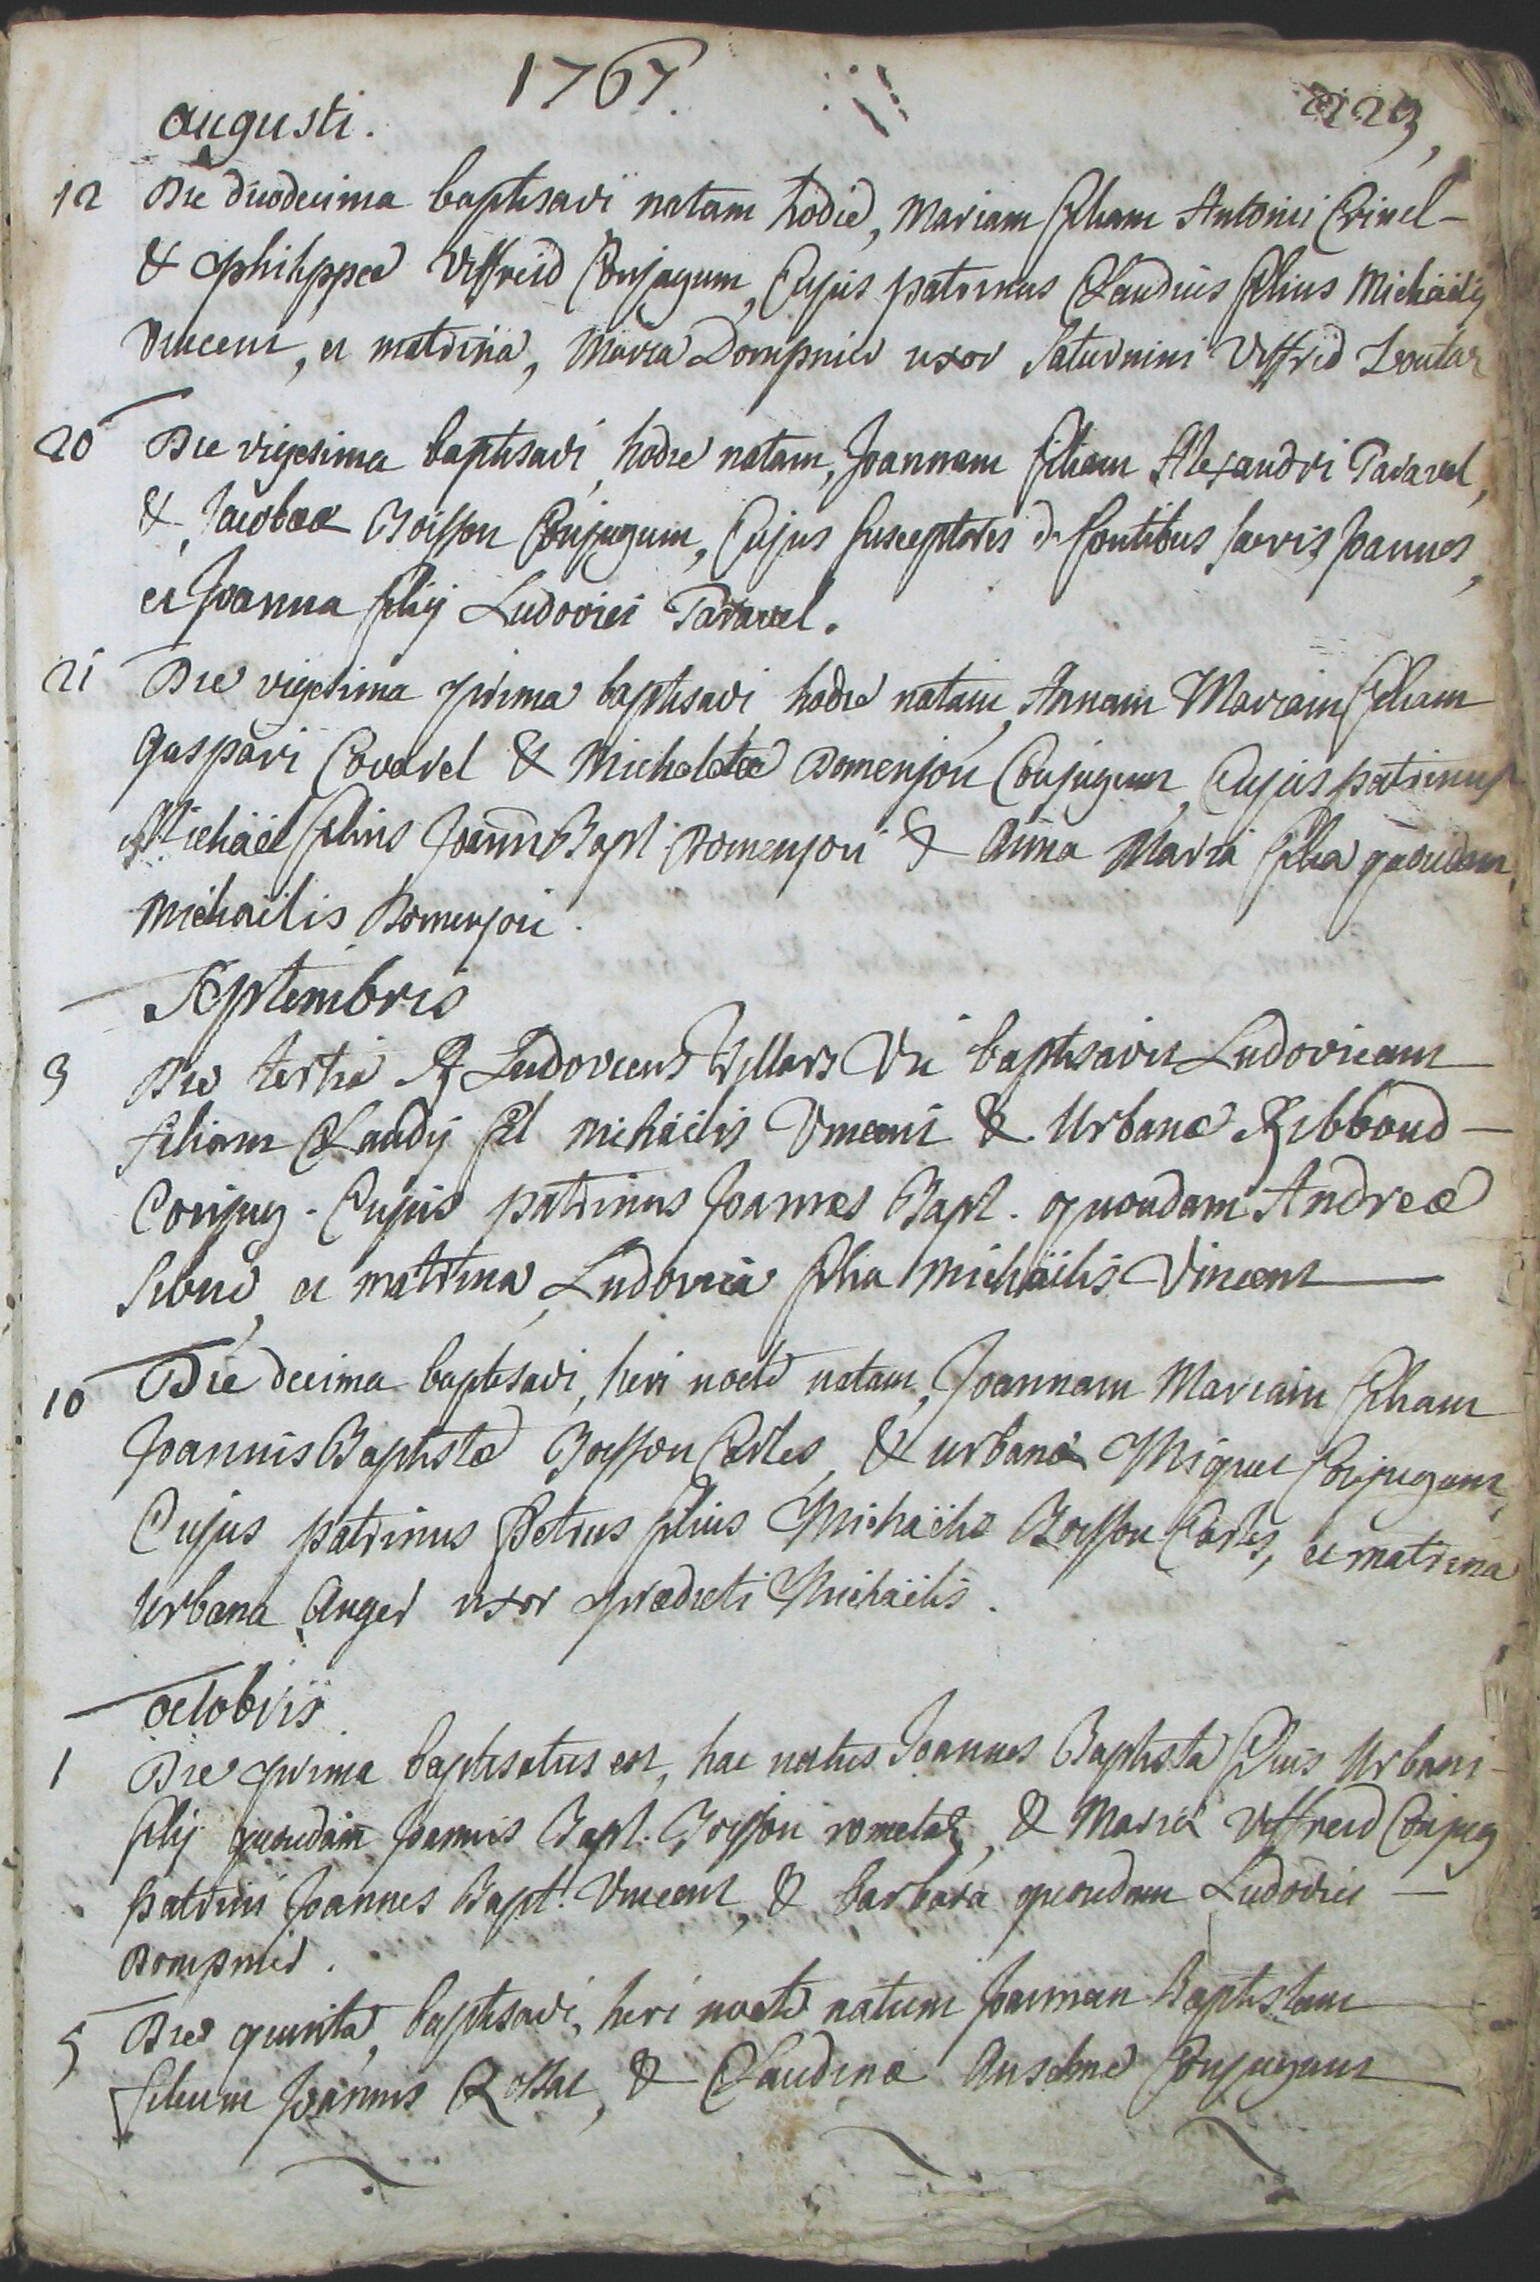 1767.
223,
augusti.
12 Die duodecima baptisavi natam hodie, Mariam filiam Antonii Crinel -
& philippeæ Viffreid Conjugum, Cujus patrinus Claudius filius Michäelis
Vincent, et matrina, Maria Dompnier uxor Saturnini Viffreid Loutaz
20 Die vigesima baptisavi, hodie natam, Joannam filiam Alexandri Taravel,
& Jacobææ Boisson Conjugum, Cujus susceptores de fontibus sacris Joannes,
et Joanna filij Ludovici Taravel.
21 Die vigesima prima baptisavi hodie natam, Annam Mariam filiam
Gaspari Covarel & Micheletæ Domenjou Conjugum, Cujus patrinus
Michäel filius Joan. Bapt. Domenjou & Anna Maria filia quondam
Michäelis Domenjou.
Septembris
3 Die tertia Rd Ludovicus Villars Vic baptisavit Ludovicam
filiam Claudij fil Michäelis Vincent & Urbanæ Ribboud -
Conjug. Cujus patrinus Joannes Bapt. quondam Andreæ
Sibué, et matrina, Ludovica filia Michäelis Vincent
10 Die decima baptisavi, heri nocte natam, Joannam Mariam filiam
Joannis Baptistæ Boisson Cartes, & Urbanæ Miquet Conjugum,
Cujus patrinus Petrus filius Michäelis Boisson Cartes, et matrina
Urbana Auger uxor prædicti Michäelis.
octobris
1 Die prima baptisatus est, hac natus Joannes Baptista filius Urbani
filij quondam Joannis Bapt. Boisson rometaz, & Mariæ Viffreid Conjug
patrini Joannes Bapt. Vincent, & barbara quondam Ludovici -
Dompnier.
5 Die quinta, baptisavi, heri nocte natum Joannem baptistam
filium Joannis Rostat, & Claudinæ Anselme Conjugum